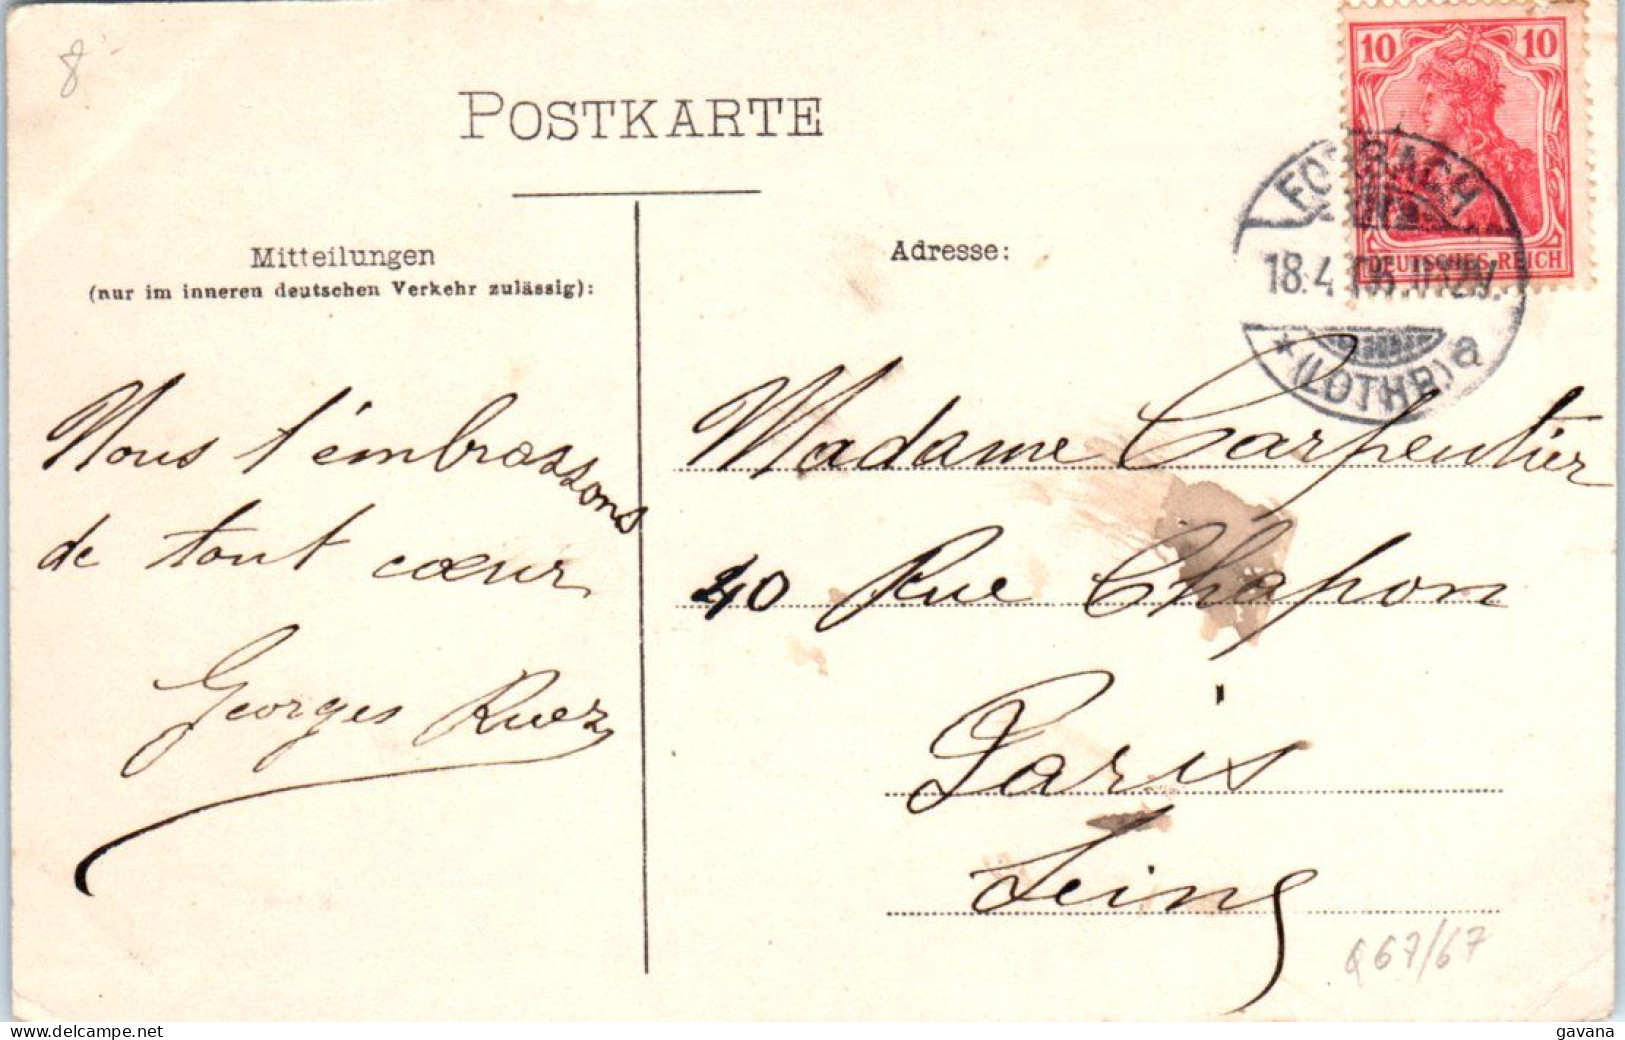 8
POSTKARTE
10 10
DEUTSCHES REICH
FORBACH
18.4.
* (LOTHR.) a
Mitteilungen
(nur im inneren deutschen Verkehr zulässig):
Nous t'embrassons
de tout cœur
Georges Ruez
Adresse:
Madame Carpentier
40 Rue Chapon
Paris
Seine
67/67
delcampe.net
gavana